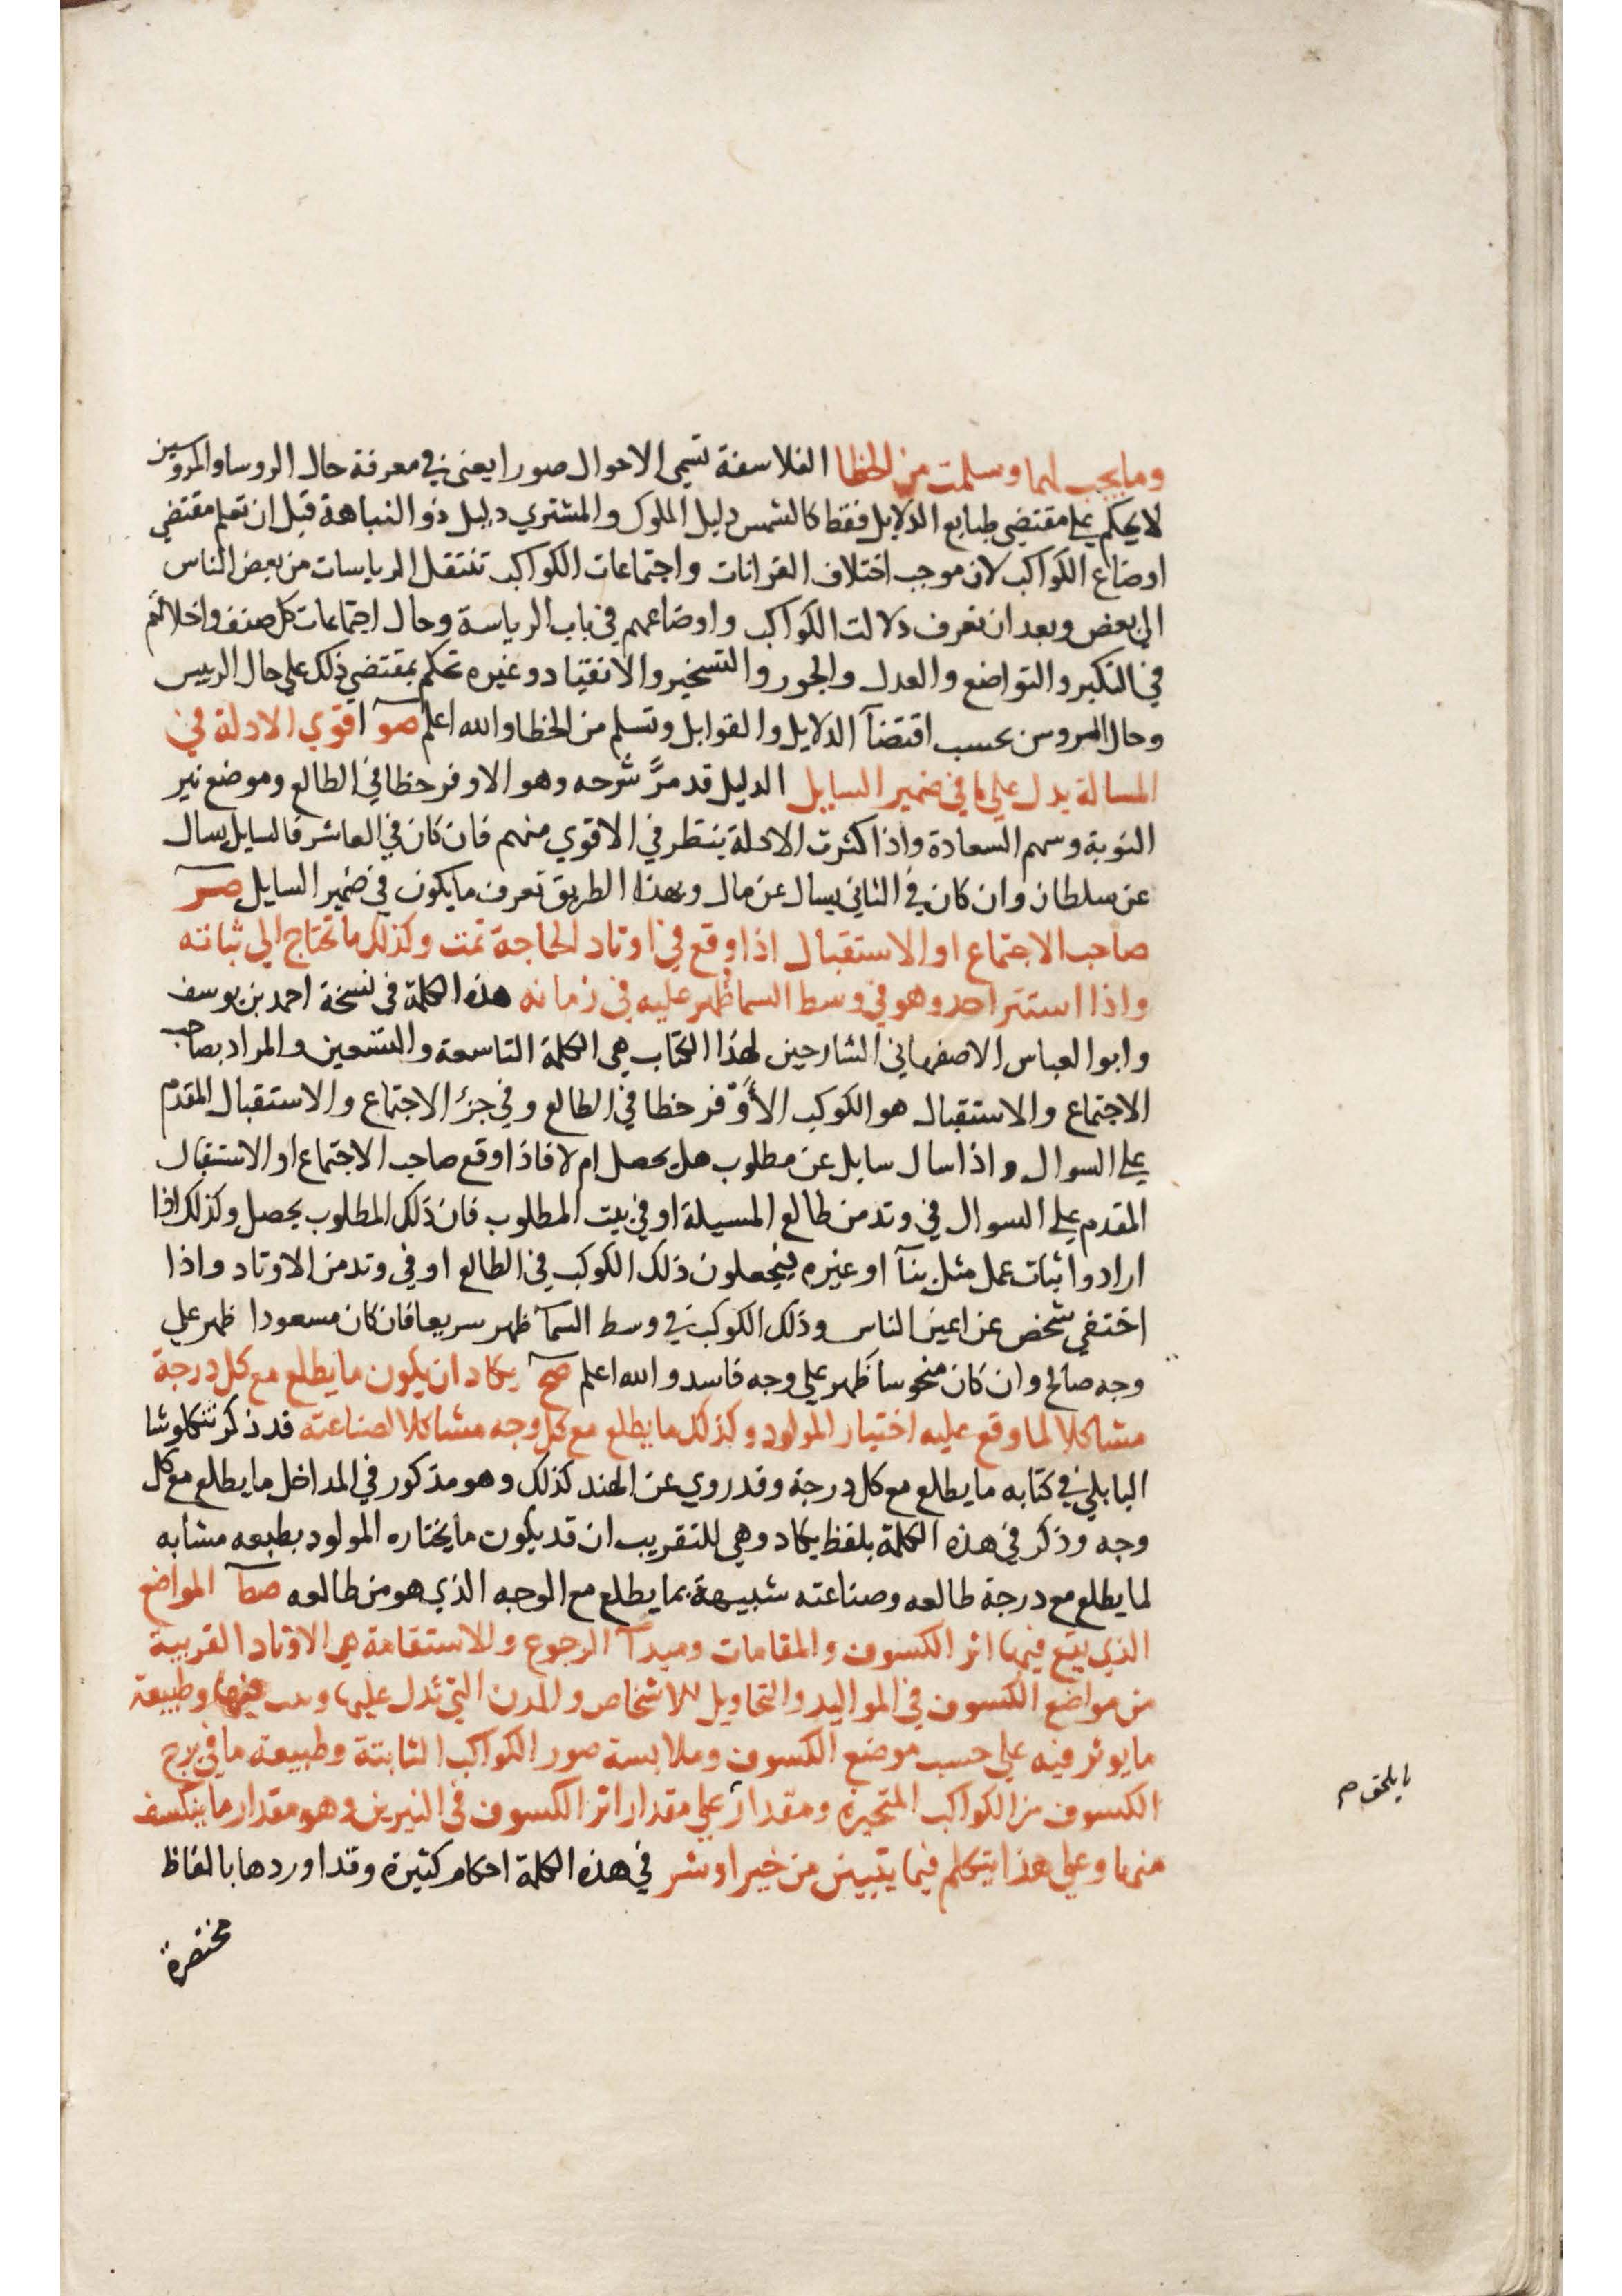 وما يجب لهما وسلمت من الخطا الفلاسفة تسمى الاحوال صورا يعنى في معرفة حال الروسا والمروسين
لا يحكم علي مقتضي طبايع الدلايل فقط كالشمس دليل الملوك والمشتري دليل ذو النباهة قبل ان تعلم مقتضي
اوضاع الكواكب لان موجب اختلاف القرانات واجتماعات الكواكب تنتقل الرياسات من بعض الناس
الي بعض وبعد ان تعرف دلالت الكواكب واوضاعهم في باب الرياسة وحال اجتماعات كل صنف واخلاقهم
في التكبر والتواضع والعدل والجور والتسخير والانقياد وغيره تحكم بمقتضي ذلك علي حال الرييس
وحال المروس بحسب اقتضآ الدلايل والقوابل وتسلم من الخطا والله اعلم صو اقوي الادلة في
المسالة يدل علي ما في ضمير السايل الدليل قد مرَّ شرحه وهو الاوفر حظا في الطالع وموضع نير
النوبة وسهم السعادة واذا كثرت الادلة ينظر في الاقوي منهم فان كان في العاشر فالسايل يسال
عن سلطان وان كان في الثاني يسال عن مال وبهذا الطريق تعرف ما يكون في ضمير السايل صر
صاحب الاجتماع او الاستقبال اذا وقع في اوتاد الحاجة تمت وكذلك ما تحتاج الي ثباته
واذا استتر احد وهو في وسط السما ظهر عليه في زمانه هذه الكلمة في نسخة احمد بن يوسف
وابو العباس الاصفهاني الشارحين لهذا الكتاب هي الكلمة التاسعة والتسعين والمراد بصاحب
الاجتماع والاستقبال هو الكوكب الأوْفر حظا في الطالع وفي جزء الاجتماع والاستقبال المقدم
علي السوال واذا سال سايل عن مطلوب هل يحصل ام لا فاذا وقع صاحب الاجتماع او الاستقبال
المقدم علي السوال في وتد من طالع المسيلة او في بيت المطلوب فان ذلك المطلوب يحصل وكذلك اذا
ارادوا ثبات عمل مثل بنآ او غيره فيجعلون ذلك الكوكب في الطالع او في وتد من الاوتاد واذا
اختفي شخص عن اعين الناس وذلك الكوكب في وسط السمآ ظهر سريعا فان كان مسعودا ظهر علي
وجه صالح وان كان منحوسا ظهر علي وجه فاسد والله اعلم صح يكاد ان يكون ما يطلع مع كل درجة
مشاكلا لما وقع عليه اختيار المولود وكذلك ما يطلع مع كل وجه مشاكلا لصناعته قد ذكر تنكلوشا
البابلي في كتابه ما يطلع مع كل درجة وقد روي عن الهند كذلك وهو مذكور في المداخل ما يطلع مع كل
وجه وذكر في هذه الكلمة بلفظ يكاد وهي للتقريب ان قد يكون ما يختاره المولود بطبعه مشابه
لما يطلع مع درجة طالعه وصناعته شبيهة بما يطلع مع الوجه الذي هو من طالعه صط المواضع
الذي يقع فيها اثر الكسوف والمقامات ومبدآ الرجوع والاستقامة هي الاوتاد القريبة
من مواضع الكسوف في المواليد والتحاويل للاشخاص والمدن التي تدل عليها وطبيعة
ما يوثر فيه علي حسب موضع الكسوف وملابسة صور الكواكب الثابتة وطبيعة ما في برج
الكسوف من الكواكب المتحيرة ومقدار علي مقدار اثر الكسوف في النيرين وهو مقدار ما ينكسف
منهما وعلي هذا يتكلم فيما يتبين من خير او شر في هذه الكلمة احكام كثيرة وقد اوردها بالفاظ
مختصرة